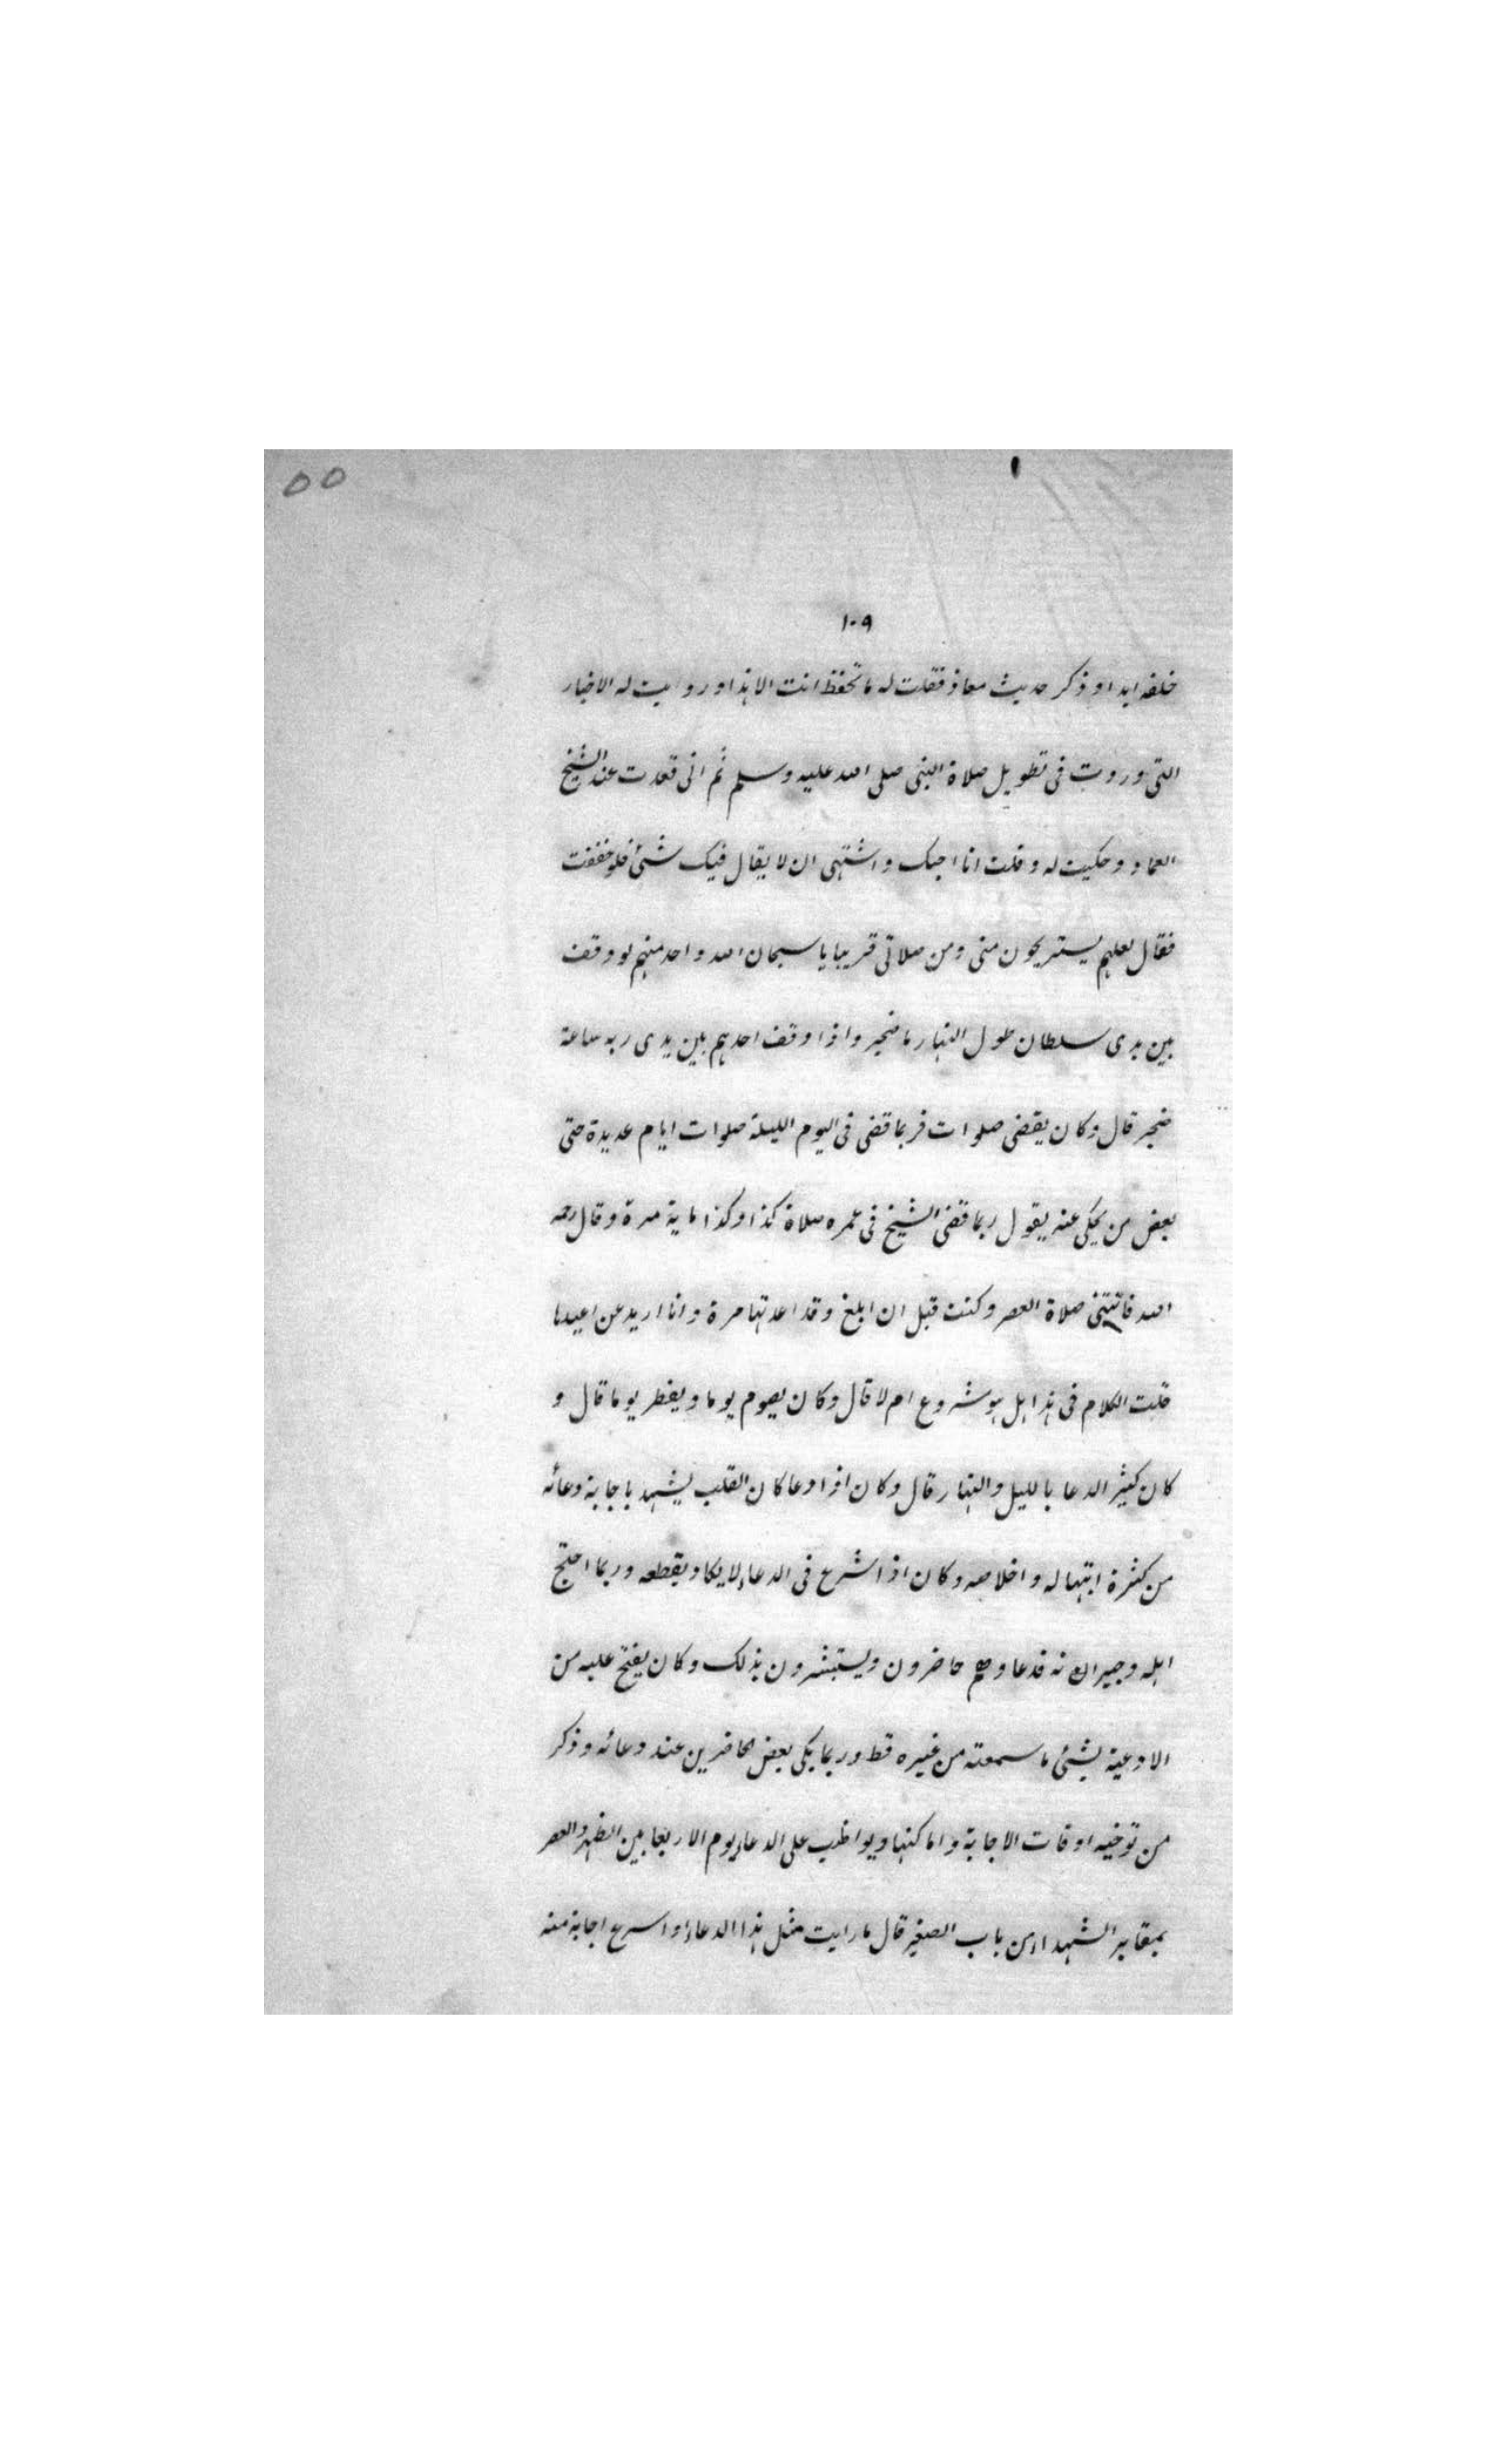 ٥٥
١٠٩
خلفه ابدا وذكر حديث معاذ فقلت له ما تحفظ انت الا هذا ورويت له الاخبار
التى وروت فى تطويل صلاة النبى صلى الله عليه وسلم ثم انى قعدت عند الشيخ
العماد وحكيت له وقلت انا احبك واشتهى ان لا يقال فيك شئ فلو خففت
فقال لعلهم يستريحون منى ومن صلاتى قريبا يا سبحان الله واحد منهم لو وقف
بين يدى سلطان طول النهار ما ضجر واذا وقف احدهم بين يدى ربه ساعة
ضجر قال وكان يقضى صلوات فربما قضى فى اليوم الليلة صلوات ايام عديدة حتى
بعض من يحكى عنه يقول ربما قضى الشيخ فى عمره صلاة كذا وكذا ماية مرة وقال رحمه
الله فاتتنى صلاة العصر وكنت قبل ان ابلغ وقد اعدتها مرة وانا اريد عن اعيدها
قلت الكلام فى هذا هل هو مشروع ام لا قال وكان يصوم يوما ويفطر يوما قال و
كان كثير الدعا بالليل والنهار قال وكان اذا دعا كان القلب يشهد باجابة دعائه
من كثرة ابتهاله واخلاصه وكان اذا شرع فى الدعاء لا يكاد يقطعه وربما احتج
اهله وجيرانه فدعا وهم حاضرون ويستبشرون بذلك وكان يفتح عليه من
الادعية بشئ ما سمعته من غيره قط وربما بكى بعض الحاضرين عند دعائه وذكر
من توخيه اوقات الاجابة واماكنها ويواظب على الدعاء يوم الاربعا بين الظهر والعصر
بمقابر الشهداء من باب الصغير قال ما رايت مثل هذا الدعاء او اسرع اجابة منه